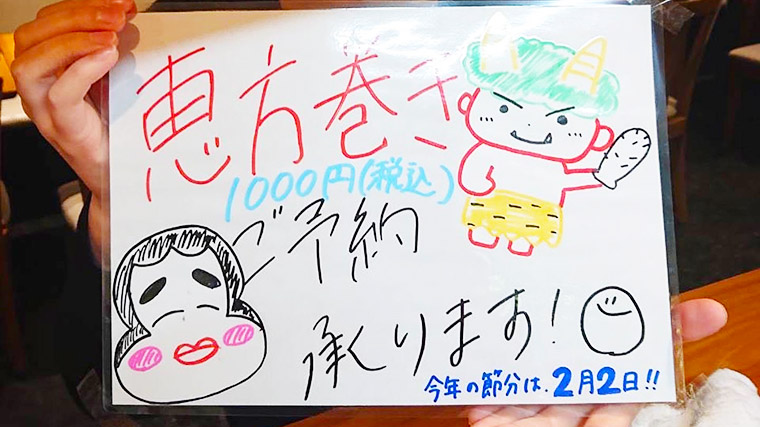 恵方巻き
1000円(税込)
ご予約
承ります!
今年の節分は、2月2日!!